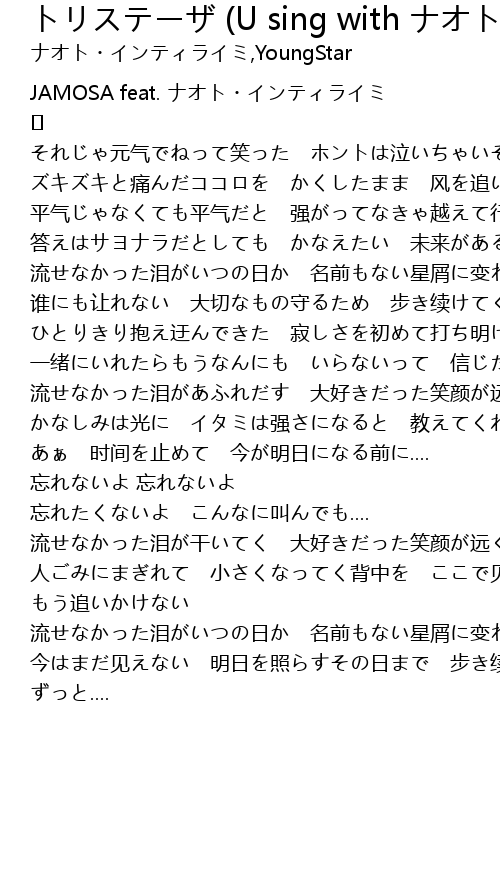 トリステーザ (U sing with ナオト
ナオト・インティライミ,YoungStar
JAMOSA feat. ナオト・インティライミ
[]
それじゃ元气でねって笑った　ホントは泣いちゃいそ
ズキズキと痛んだココロを　かくしたまま　风を追い
平气じゃなくても平气だと　强がってなきゃ越えて行
答えはサヨナラだとしても　かなえたい　未来がある
流せなかった泪がいつの日か　名前もない星屑に变わ
谁にも让れない　大切なもの守るため　步き续けてく
ひとりきり抱え迂んできた　寂しさを初めて打ち明け
一绪にいれたらもうなんにも　いらないって　信じた
流せなかった泪があふれだす　大好きだった笑颜が远
かなしみは光に　イタミは强さになると　教えてくれ
あぁ　时间を止めて　今が明日になる前に....
忘れないよ 忘れないよ
忘れたくないよ　こんなに叫んでも....
流せなかった泪が干いてく　大好きだった笑颜が远く
人ごみにまぎれて　小さくなってく背中を　ここで见
もう追いかけない
流せなかった泪がいつの日か　名前もない星屑に变わ
今はまだ见えない　明日を照らすその日まで　步き续
ずっと....